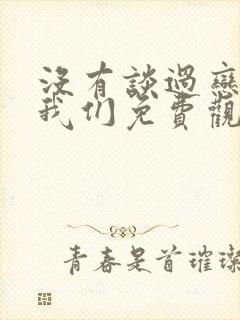 沒有談過戀
我们免費觀
青春是首璀璨